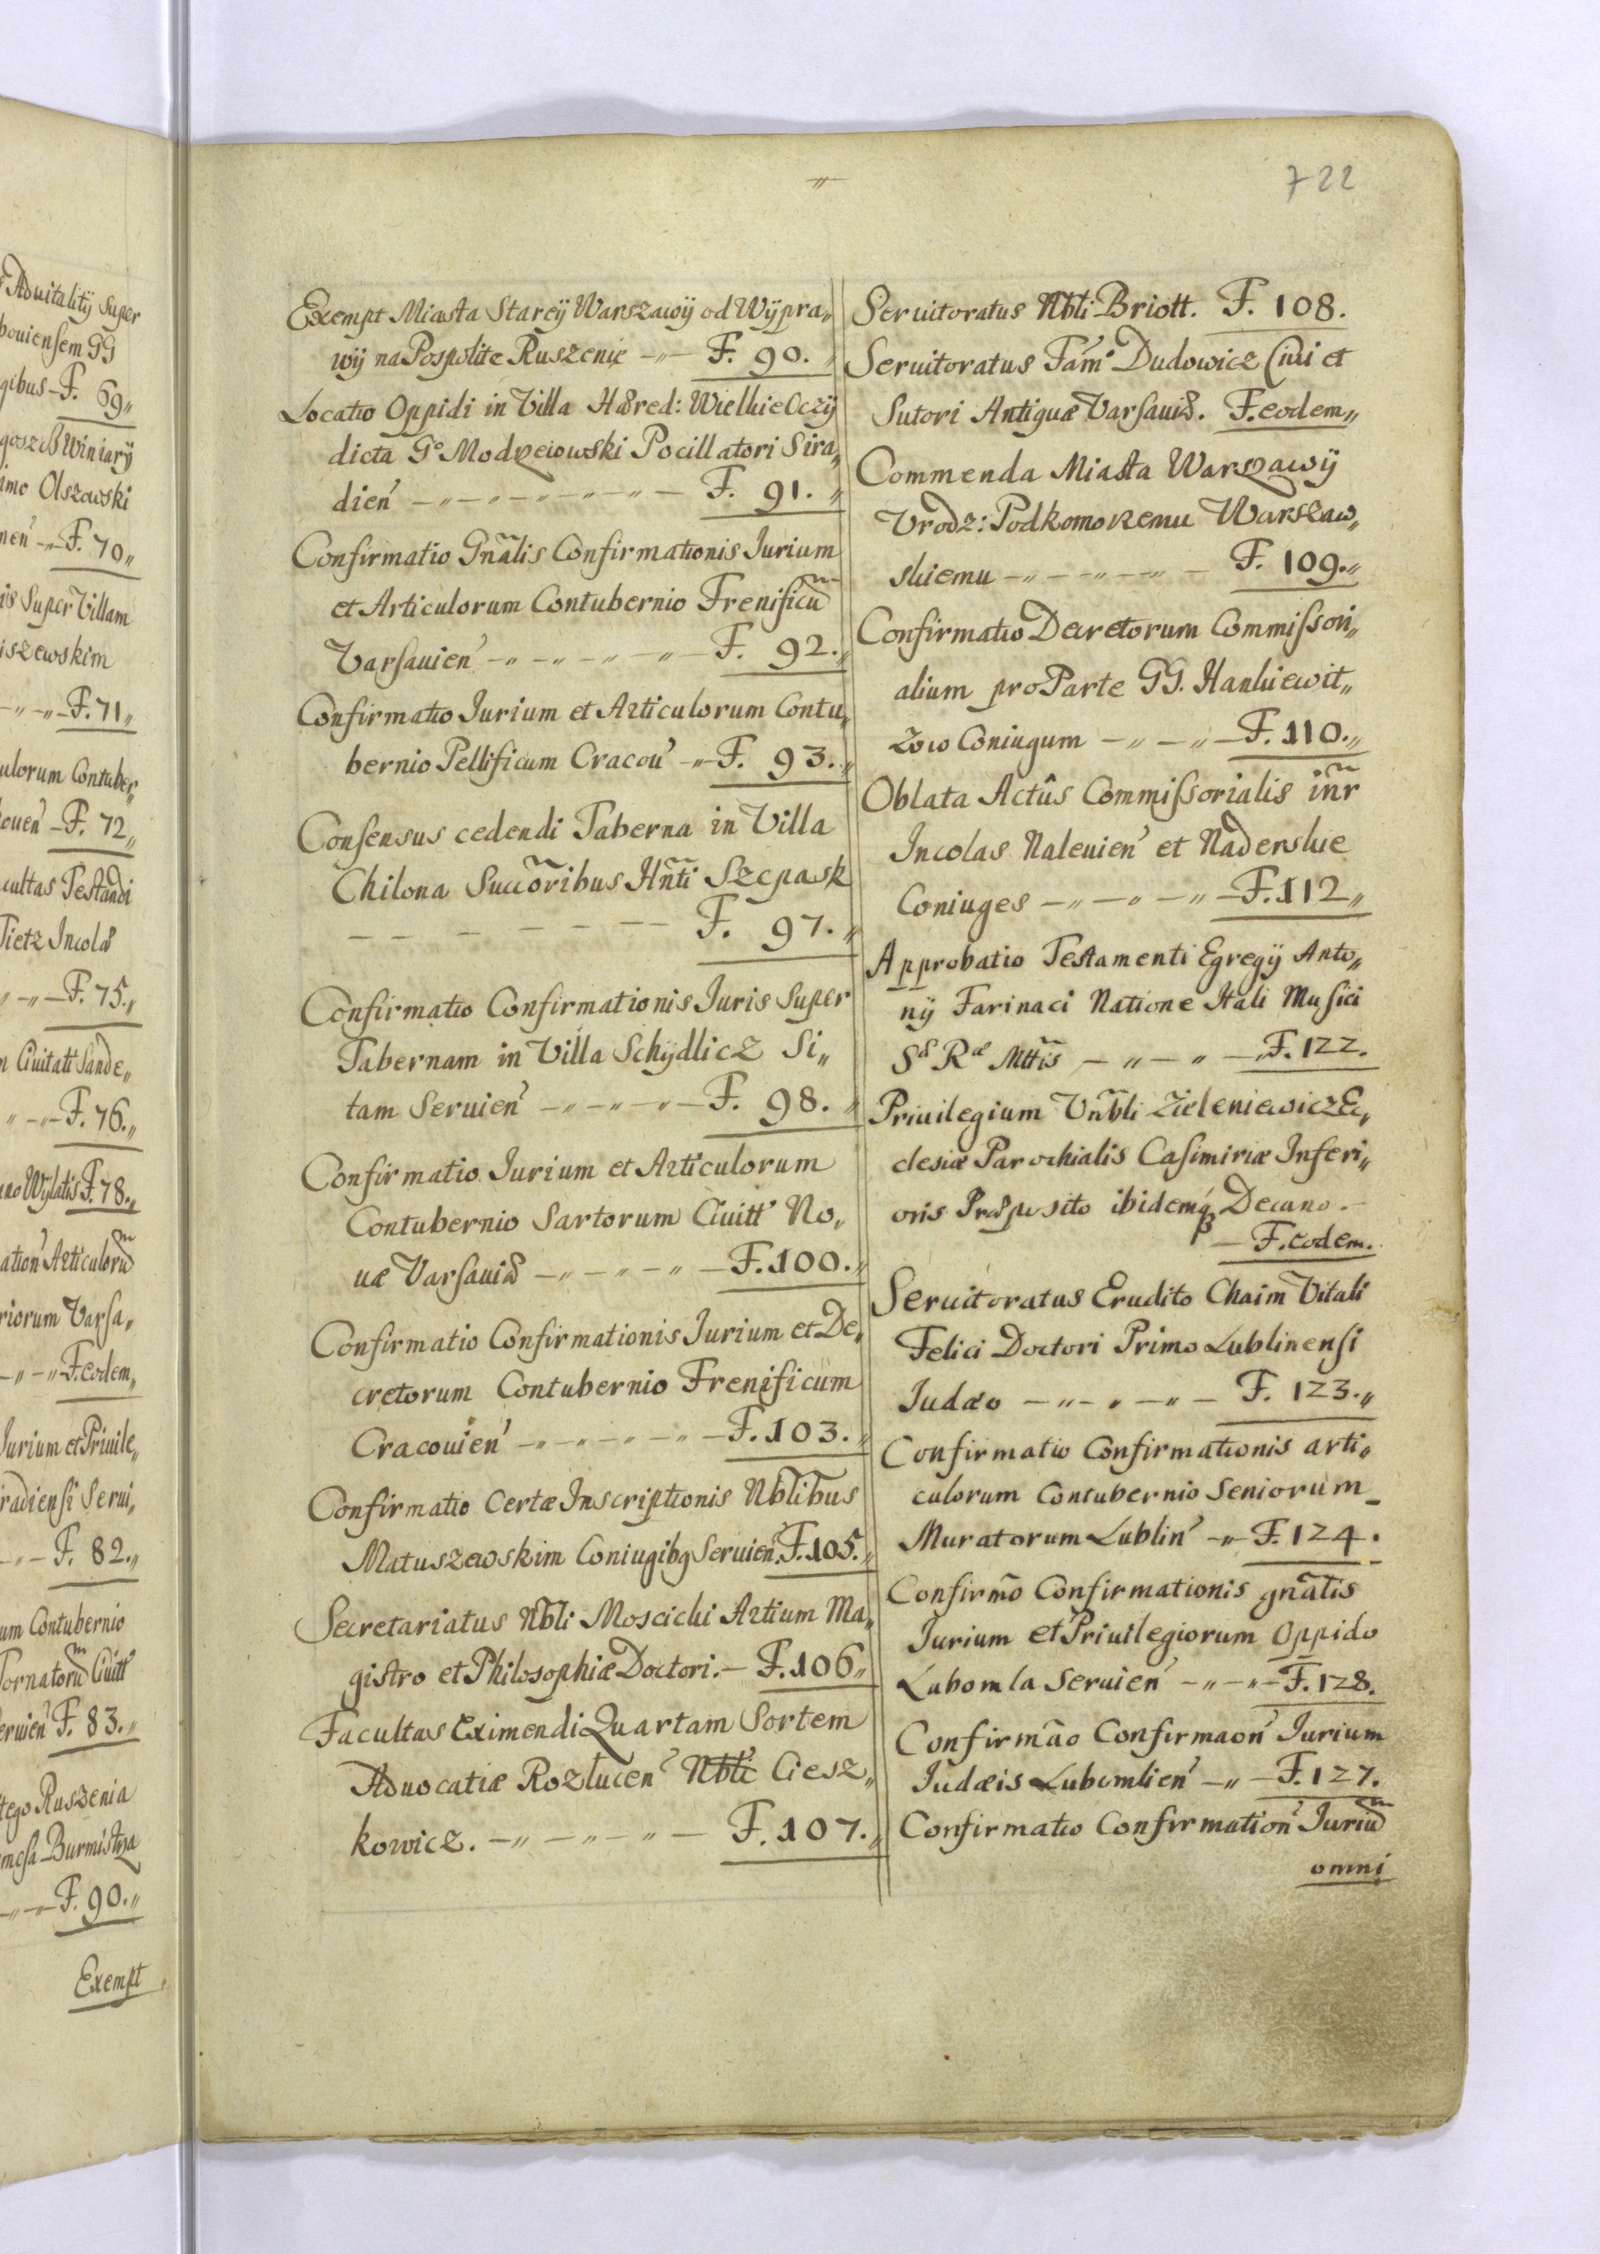 Advitalitÿ Super
boviensem GG
gibus – F. 69„
Winiarÿ
Olszewski
F. 70„
is Super Villam
iszewskim
F. 71„
ulorum Contuber„
F. 72„
cultas Testandi
Tietz Incolæ
F. 75„
Civitati Sande„
F. 76.„
F. 78.„
Articuloru
riorum Varsa„
F. eodem„
Iurium et Privile„
radiensi Servi„
F. 82.„
um Contubernio
Tornatoru Civitt
F. 83.„
tego Ruszenia
Burmistrza
F. 90.„
Exempt
722
Exempt Miasta Stareÿ Warszawÿ od Wÿpra„
wÿ na Pospolite Ruszenie –„– F. 90. „
Locatio Oppidi in Villa Hæred: Wielkie Oczÿ
dicta G° Modzeiowski Pocillatori Sira„
dien –„–„–„–„–„– F. 91. „
Confirmatio Gnalis Confirmationis Iurium
et Articulorum Contubernio Frenificu
Varsauien –„–„–„–„– F. 92.„
Confirmatio Iurium et Articulorum Contu„
bernio Pellificum Cracou –„– F. 93.„
Consensus cedendi Taberna in Villa
Chilona Succoribus Hnti Szepask
– – – – – – – F. 97. „
Confirmatio Confirmationis Iuris Super
Tabernam in Villa Schÿdlicz Si„
tam Seruien –„–„–„– F. 98. „
Confirmatio Iurium et Articulorum
Contubernio Sartorum Ciuitt No„
uæ Varsauiæ –„–„–„– F. 100.„
Confirmatio Confirmationis Iurium et De„
cretorum Contubernio Frenificum
Cracouien –„–„–„–„– F. 103. „
Confirmatio Certæ Inscriptionis Nblibus
Matuszewskim Coniugibq Seruien. F. 105.„
Secretariatus Nbli Moscicki Artium Ma„
gistro et Philosophiæ Doctori. – F. 106„
Facultas Eximendi Quartam Sortem
Aduocatiæ Rozlucen Nbli Ciesz„
kowicz. –„–„–„– F. 107. „
Seruitoratus Nbli Briott. F. 108.
Seruitoratus Fam° Dudowicz Ciui et
Sutori Antiquæ Varsauiæ. F. eodem„
Commenda Miasta Warszawÿ
Vrodz: Podkomorzemu Warszaw„
skiemu –„–„–„– F. 109.„
Confirmatio Decretorum Commissori„
alium pro Parte GG. Hankiewit„
zow Coniugum –„–„– F. 110.„
Oblata Actûs Commissorialis inr
Incolas Naleuien et Naderskie
Coniuges –„–„–„– F. 112„
Approbatio Testamenti Egregÿ Anto„
nÿ Farinaci Natione Itali Musici
Sæ Ræ Mttis –„–„–„ F. 122.
Priuilegium Vnbli Zieleniewicz Ec„
clesiæ Parochialis Casimiriæ Inferi„
oris Præposito ibidemq Decano. –
– F. eodem.
Seruitoratus Erudito Chaim Vitali
Felici Doctori Primo Lublinensi
Iudæo –„–„–„– F. 123.„
Confirmatio Confirmationis arti„
culorum Contubernio Seniorum
Muratorum Lublin –„– F. 124.
Confirmo Confirmationis gnalis
Iurium et Priuilegiorum Oppido
Lubomla Seruien –„–„– F. 128.
Confirmao Confirmaon Iurium
Iudæis Lubomlien –„– F. 127.
Confirmatio Confirmation Iuriu
omni